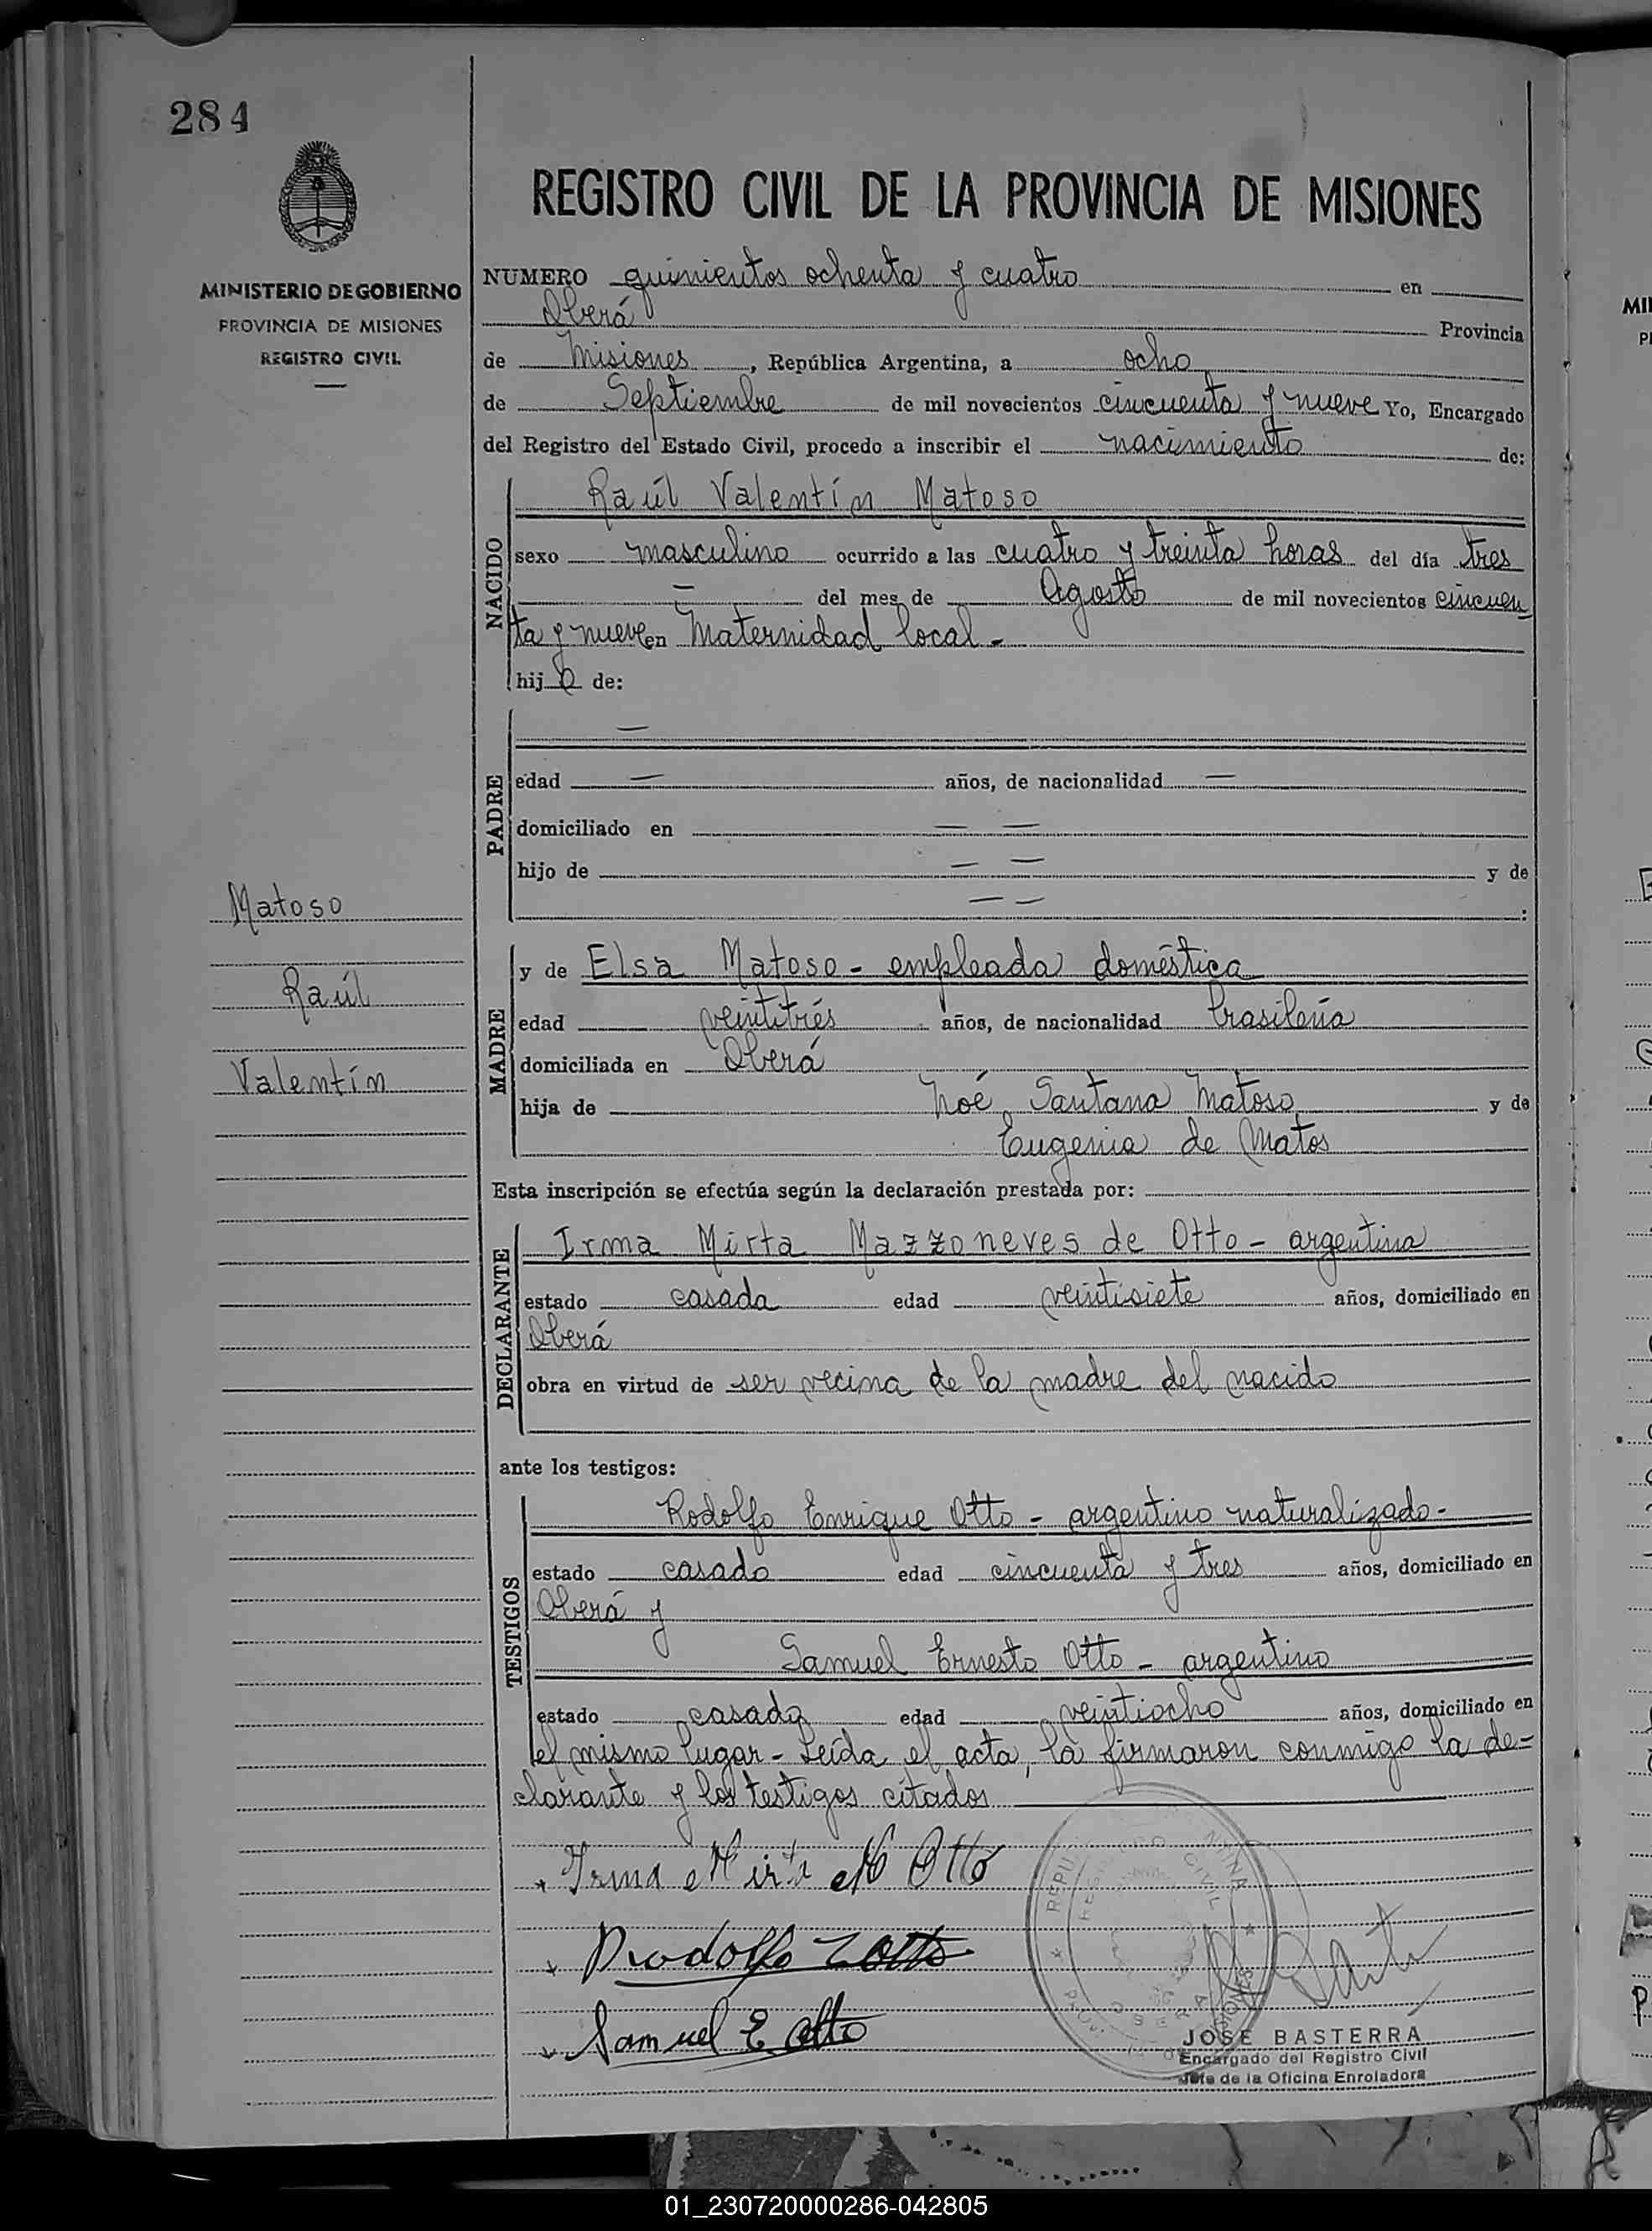 284
REGISTRO CIVIL DE LA PROVINCIA DE MISIONES
MINISTERIO DE GOBIERNO
PROVINCIA DE MISIONES
REGISTRO CIVIL
NUMERO quinientos ochenta y cuatro en
Oberá Provincia
de Misiones, República Argentina, a ocho
de Septiembre de mil novecientos cincuenta y nueve Yo, Encargado
del Registro del Estado Civil, procedo a inscribir el nacimiento de:
NACIDO
Raúl Valentín Matoso
sexo masculino ocurrido a las cuatro y treinta horas del día tres
— del mes de Agosto de mil novecientos cincuen
ta y nueve en Maternidad local -
hijo de:
PADRE
—
edad — años, de nacionalidad —
domiciliado en — —
hijo de — — y de
— — :
Matoso
Raúl
Valentín
MADRE
y de Elsa Matoso - empleada doméstica
edad veintitrés años, de nacionalidad brasileña
domiciliada en Oberá
hija de Noé Santana Matoso y de
Eugenia de Matos
Esta inscripción se efectúa según la declaración prestada por:
DECLARANTE
Irma Mirta Mazzoneves de Otto - argentina
estado casada edad veintisiete años, domiciliado en
Oberá
obra en virtud de ser vecina de la madre del nacido
ante los testigos:
TESTIGOS
Rodolfo Enrique Otto - argentino naturalizado -
estado casado edad cincuenta y tres años, domiciliado en
Oberá y
Samuel Ernesto Otto - argentino
estado casado edad veintiocho años, domiciliado en
el mismo lugar - Leída el acta, la firmaron conmigo la de-
clarante y los testigos citados
Irma Mirta M Otto
Rodolfo E Otto
Samuel E Otto
JOSE BASTERRA
Encargado del Registro Civil
Jefe de la Oficina Enroladora
01_230720000286-042805